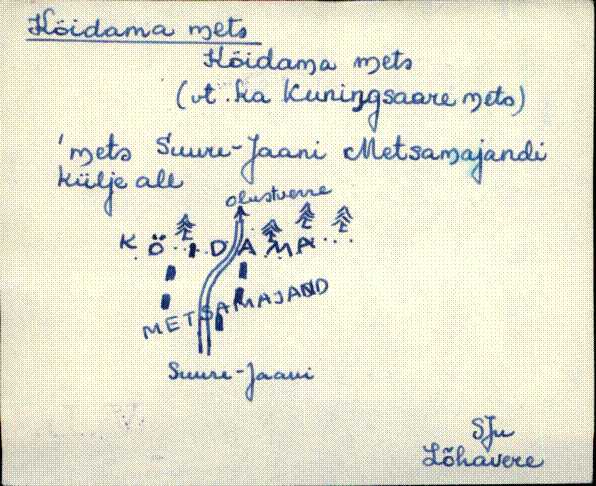 Köidama mets
Köidama mets
(vt. ka Kuningsaare mets)
'mets Suure-Jaani Metsamajandi
külje all
Olustverre
KÖIDAMA
METSAMAJAND
Suure-Jaani
SJn
Lõhavere